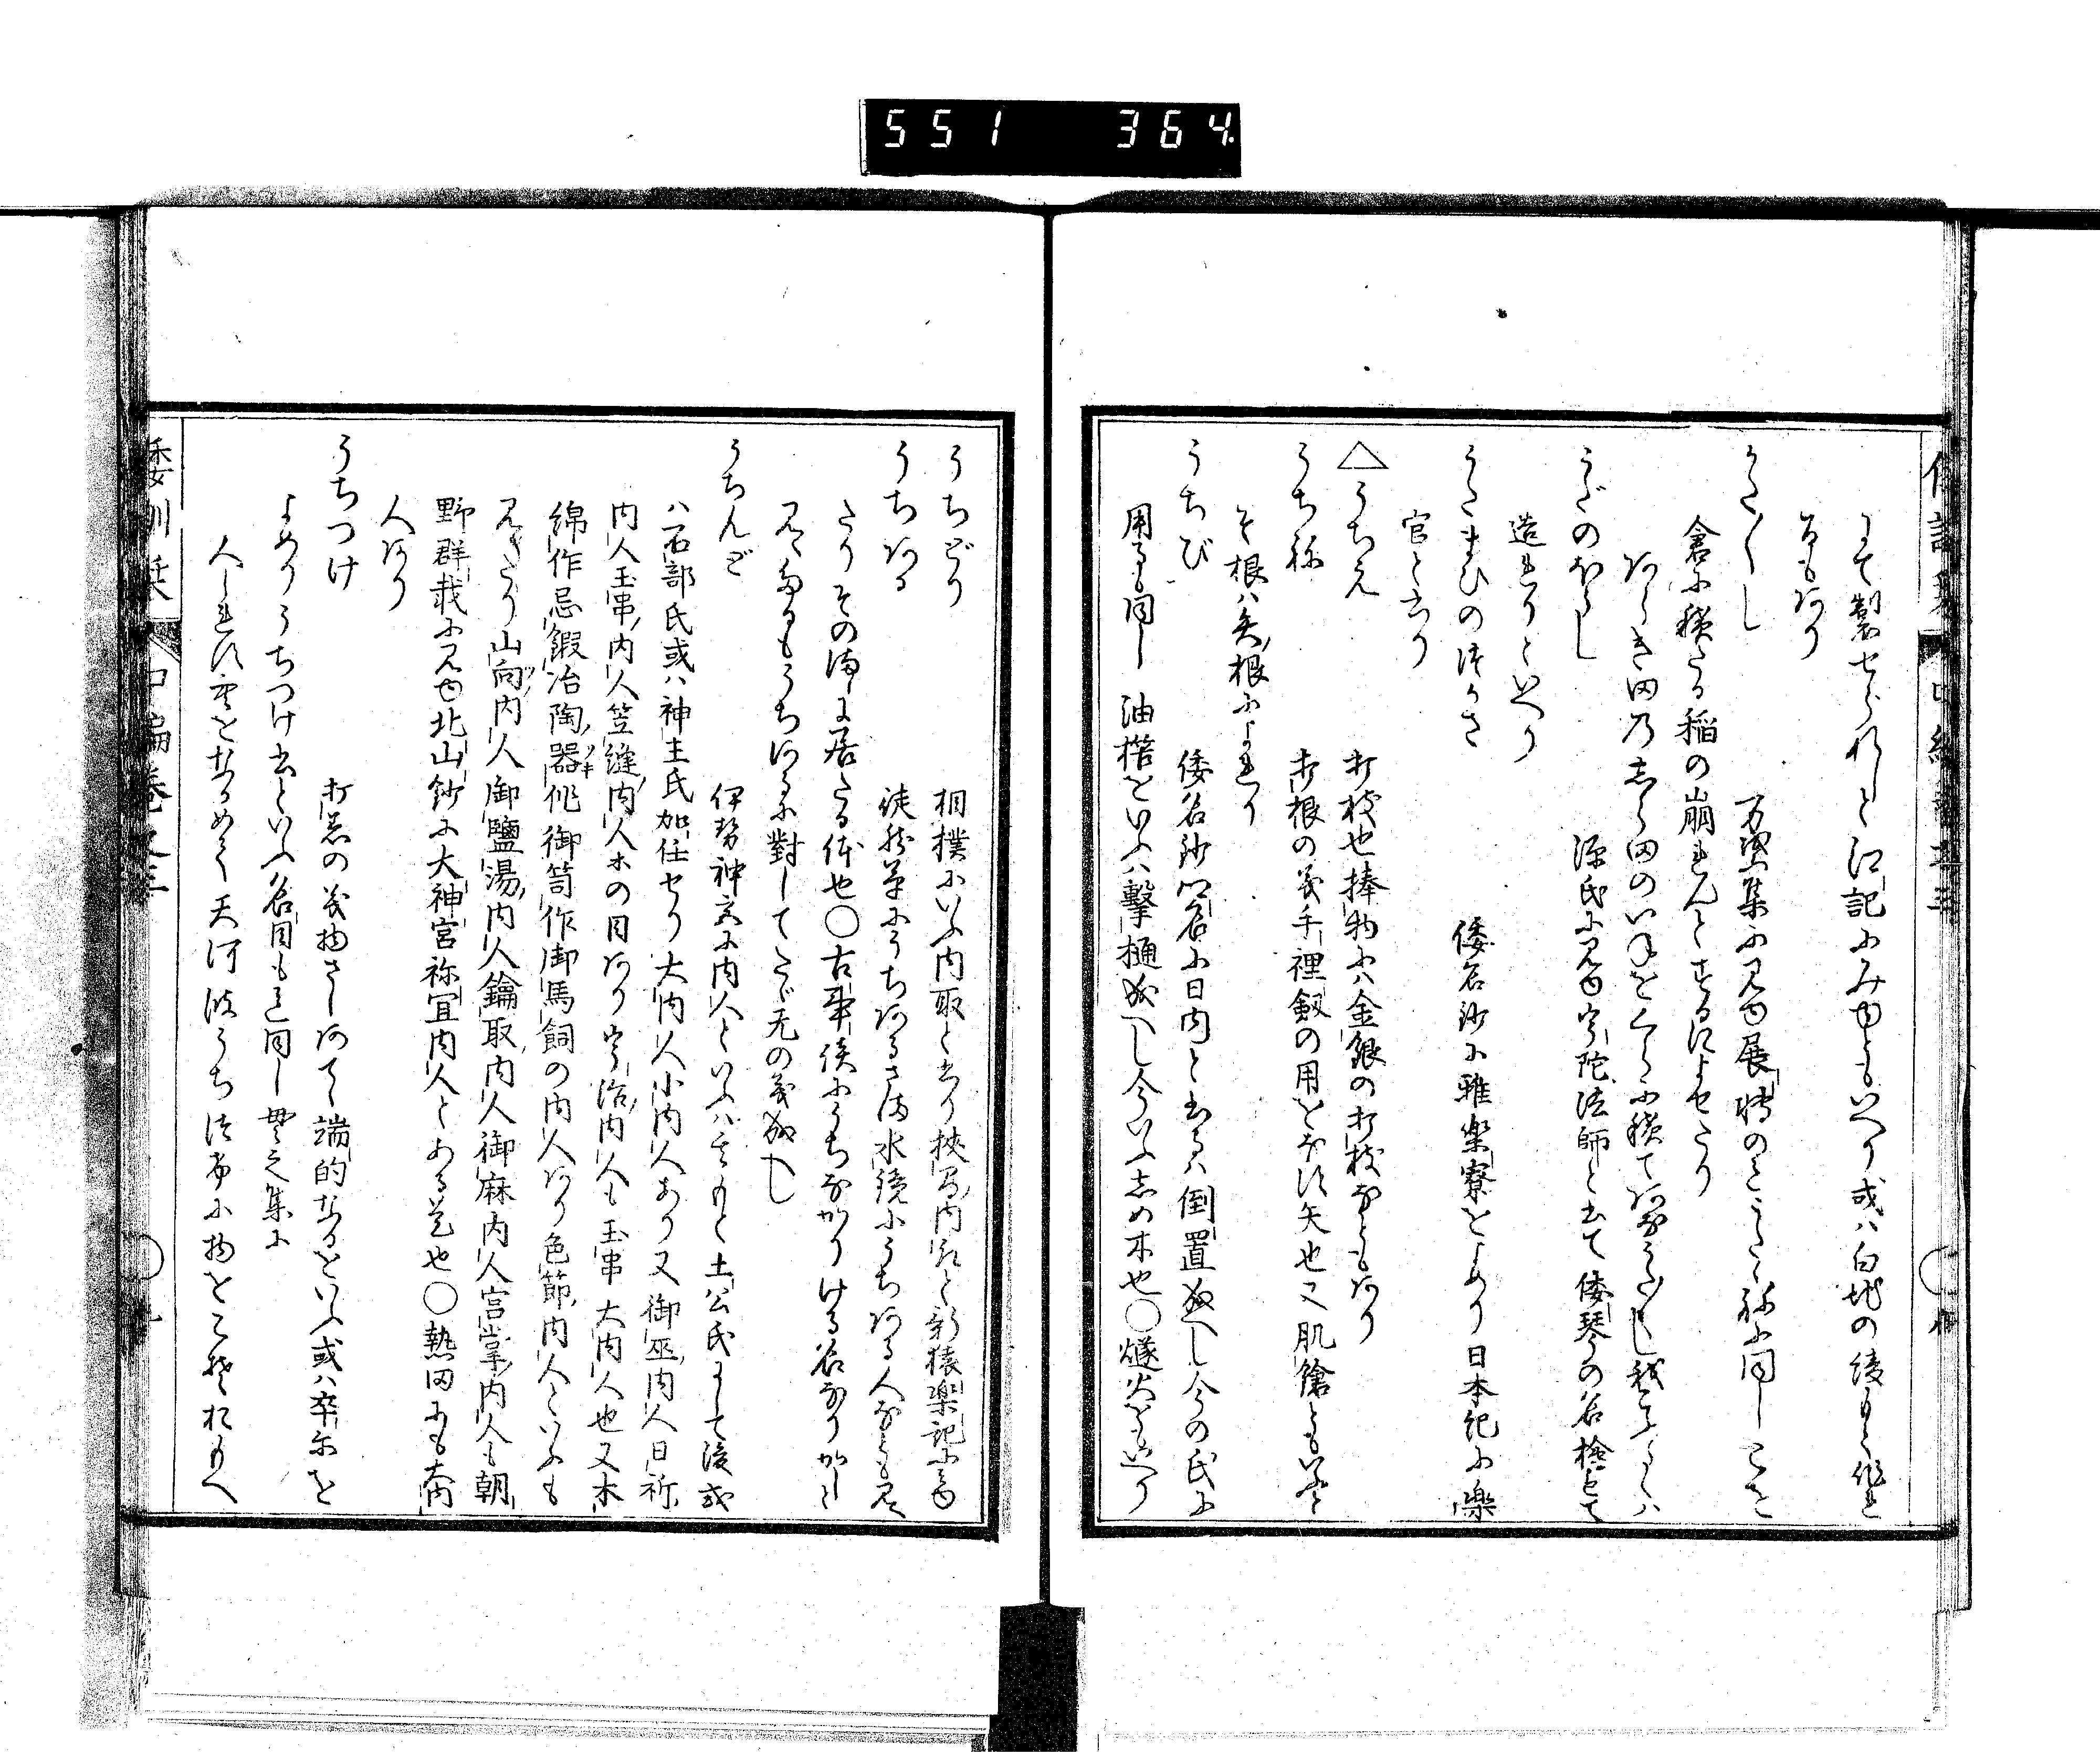 551 364
にて製せられしと江記にみゆともいへり或ハ白地の綾もて作れ
るもあり
うたゝし 万葉集に見ゆ展転のこゝろ同しこゝを
倉に積たる稲の崩れんとするによせたり
あらき田のしゝ田のいねをくらに積てあなうたゝし我こふらくハ
うだのほふし 源氏に見ゆ宇陀法師と書て倭琴の名檜もて
造れりといへり
うたまひのつかさ 倭名抄に雅楽寮をよめり日本紀に楽
官と書り
△うちえ 打枝也捧物にハ金銀の打枝なともあり
うちね 打根の義手裡剱の用をなす矢也又肌鎗ともいふと
そ根ハ矢根によれり
うちび 倭名抄郷名に日内と書るハ倒置成へし今の氏に
用るも同し 油楷をいふハ撃樋成へし今いふしめ木也○燧火をもいへり
うちどり 相撲にいふ内取と書り挾名内取と新猿楽記に見ゆ
うちある 徒然草にうちあるさま水鏡にうちある人なとも見え
たりその侭に居たる体也○古事談にうちなかりける名なりかしと
見えたるもうちあるに對してたゞ无の義成へし
うちんど 伊勢神宮に内人といふハもと土公氏にして後或
ハ石部氏或ハ神主氏加任せり大内人小内人あり又御巫内人日祈
内人玉串内人笠縫内人木の目あり宇治内人も玉串大内人也又木
綿作忌鍛冶陶器作御笥作御馬飼の内人あり色節内人といふも
見えたり山向内人御鹽湯内人鑰取内人御麻内人宮掌内人も朝
野群載に見ゆ北山鈔に大神宮祢宜内人とあるも是也○熱田にも大内
人あり
うちつけ 打着の義物さしあてゝ端的なるをいふ或ハ卒尓を
よめりうちつけ書といふ名目も是同し貫之集に
人しれす空をなかめて天河波うちつけに物をこそおもへ
倭訓栞 中編巻之三